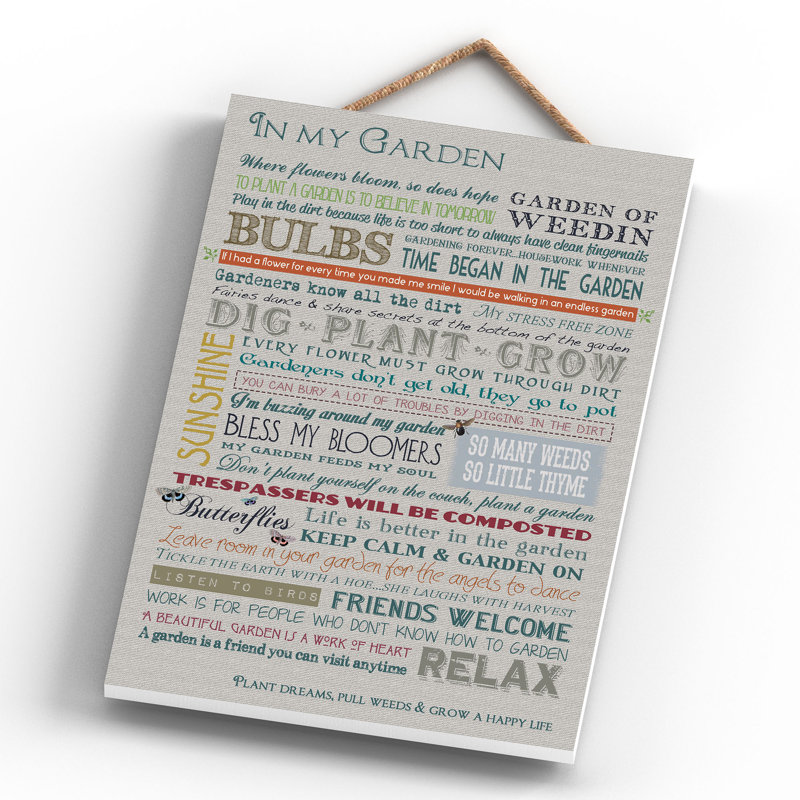 IN MY GARDEN
Where flowers bloom, so does hope
TO PLANT A GARDEN IS TO BELIEVE IN TOMORROW
GARDEN OF
WEEDIN
Play in the dirt because life is too short to always have clean fingernails
BULBS
GARDENING FOREVER...HOUSEWORK WHENEVER
TIME BEGAN IN THE GARDEN
If I had a flower for every time you made me smile I would be walking in an endless garden
Gardeners know all the dirt
MY STRESS FREE ZONE
Fairies dance & share secrets at the bottom of the garden
DIG PLANT GROW
SUNSHINE
EVERY FLOWER MUST GROW THROUGH DIRT
Gardeners don't get old, they go to pot
YOU CAN BURY A LOT OF TROUBLES BY DIGGING IN THE DIRT
I'm buzzing around my garden
BLESS MY BLOOMERS
SO MANY WEEDS
SO LITTLE THYME
MY GARDEN FEEDS MY SOUL
Don't plant yourself on the couch, plant a garden
TRESPASSERS WILL BE COMPOSTED
Butterflies
Life is better in the garden
KEEP CALM & GARDEN ON
Leave room in your garden for the angels to dance
TICKLE THE EARTH WITH A HOE...SHE LAUGHS WITH HARVEST
LISTEN TO BIRDS
FRIENDS WELCOME
WORK IS FOR PEOPLE WHO DON'T KNOW HOW TO GARDEN
A BEAUTIFUL GARDEN IS A WORK OF HEART
A garden is a friend you can visit anytime
RELAX
PLANT DREAMS, PULL WEEDS & GROW A HAPPY LIFE